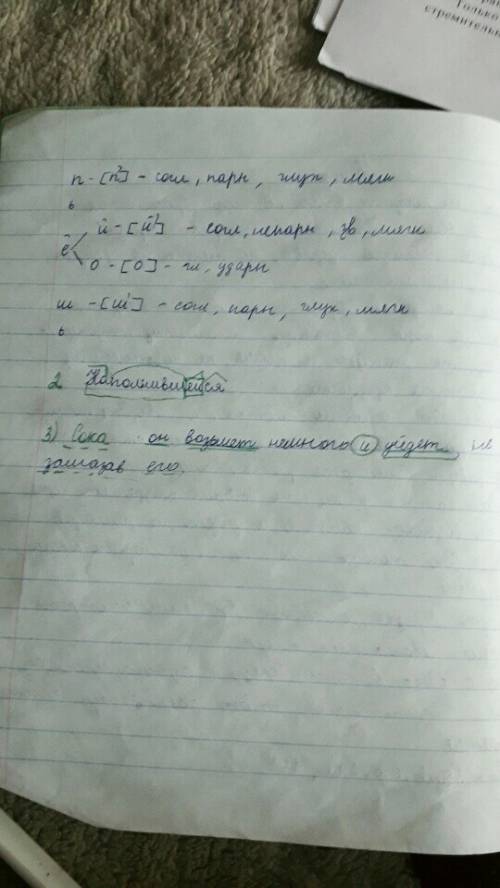 Только
стремительн
п - [п'] - согл, парн, глух, мягк
ь
ё й - [й'] - согл, непарн, зв, мягк
о - [о] - гл, ударн
ш - [ш'] - согл, парн, глух, мягк
ь
2 Наполнившейся
3) Сока он возмет немного и уйдет, не
его.